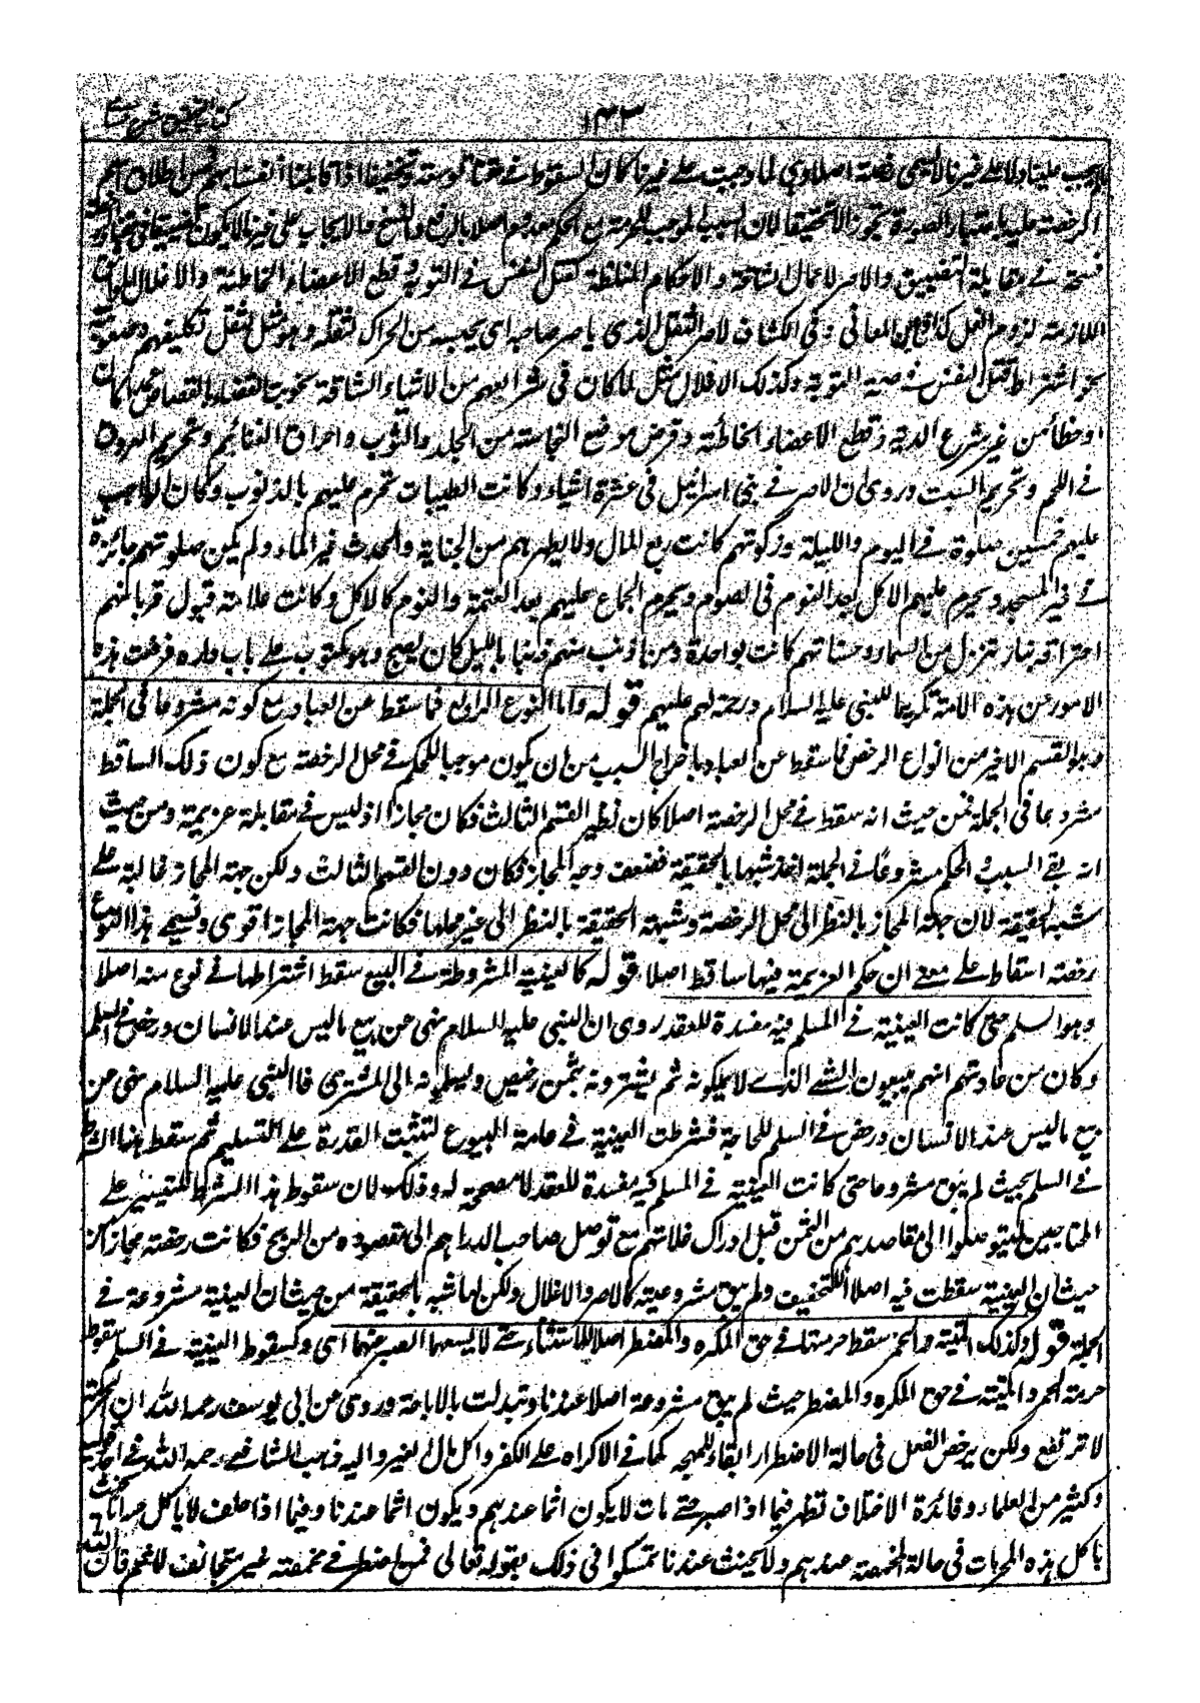 كتاب التحقيق شرح حسامي
١٤٣
يجب علينا ولا على غيرنا لا يسمى رخصة اصلا وهي لما وجبت على غيرنا كان السقوط في حقنا توسعة وتخفيفا اذا قابلنا انفسنا بهم فحسن اطلاق اسم
الرخصة عليه باعتبار الصورة تجوزا لا تحقيقا لان السبب الموجب للحرمة مع الحكم معدوم اصلا بالرفع والنسخ والايجاب على غيرنا لا يكون تضييقا في حقنا والرخصة
فسحة في مقابلة التضييق والاصر الاعمال الشاقة والاحكام المغلظة كقتل النفس في التوبة وقطع الاعضاء الخاطئة والاغلال المواثيق
اللازمة لزوم الغل كذا في عين المعاني وفي الكشاف الاصر الثقل الذي ياصر صاحبه اي يحبسه من الحراك لثقله وهو مثل لثقل تكليفهم وصعوبته
نحو اشتراط قتل النفس في صحة التوبة وكذلك الاغلال مثل لما كان في شرائعهم من الاشياء الشاقة نحو بت القضاء بالقصاص عمدا كان
او خطأ من غير شرع الدية وقطع الاعضاء الخاطئة وقرض موضع النجاسة من الجلد والثوب واحراق الغنائم وتحريم العروق
في اللحم وتحريم السبت وروى ان الاصر في بني اسرائيل في عشرة اشياء وكانت الطيبات تحرم عليهم بالذنوب وكان الواجب
عليهم خمسين صلوة في اليوم والليلة وزكوتهم كانت ربع المال ولا يطهرهم من الجنابة والحدث غير الماء ولم يكن صلوتهم جائزة
في غير المسجد ويحرم عليهم الاكل بعد النوم في الصوم ويحرم الجماع عليهم بعد العتمة والنوم كالاكل وكانت علامة قبول قربانهم
احتراقه بنار تنزل من السماء وحسناتهم كانت بواحدة ومن اذنب منهم ذنبا بالليل كان يصبح وهو مكتوب على باب داره فرفعت هذه
الامور عن هذه الامة تكريما للنبي عليه السلام ورحمة لهم عليهم قوله واما النوع الرابع فما سقط عن العباد مع كونه مشروعا في الجملة
وهو القسم الاخير من انواع الرخص فما سقط عن العباد باخراج السبب من ان يكون موجبا للحكم في محل الرخصة مع كون ذلك الساقط
مشروعا في الجملة فمن حيث انه سقط في محل الرخصة اصلا كان نظير القسم الثالث فكان مجازا اذ ليس في مقابلة عزيمة ومن حيث
انه بقي السبب والحكم مشروعا في الجملة اخذ شبها بالحقيقة فضعف وجه المجاز فكان دون القسم الثالث ولكن جهة المجاز غالبة على
شبه الحقيقة لان جهة المجاز بالنظر الى محل الرخصة وشبهة الحقيقة بالنظر الى غير محلها فكانت جهة المجاز اقوى ونسمي هذا النوع
رخصة اسقاط على معنى ان حكم العزيمة فيها ساقط اصلا قوله كالعينية المشروطة في البيع سقط اشتراطها في نوع منه اصلا
وهو السلم حتى كانت العينية في المسلم فيه مفسدة للعقد روى ان النبي عليه السلام نهى عن بيع ما ليس عند الانسان ورخص في السلم
وكان من عادتهم انهم يبيعون الشيء الذي لا يملكونه ثم يشترونه بثمن رخيص ويسلمونه الى المشتري فالنبي عليه السلام نهى عن
بيع ما ليس عند الانسان ورخص في السلم للحاجة فشرطت العينية في عامة البيوع لتثبت القدرة على التسليم ثم سقط هذا الشرط
في السلم بحيث لم يبق مشروعا حتى كانت العينية في المسلم فيه مفسدة للعقد لا مصححة له وذلك لان سقوط هذا الشرط للتيسير على
المحتاجين ليتوصلوا الى مقاصدهم من الثمن قبل ادراك غلاتهم مع توصل صاحب الدراهم الى مقصوده من الربح فكانت رخصة مجازا من
حيث ان العينية سقطت فيه اصلا للتخفيف ولم يبق مشروعيته كالاصر والاغلال ولكن لها شبه بالحقيقة من حيث ان العينية مشروعة في
الجملة قوله وكذلك الميتة والخمر سقط حرمتها في حق المكره والمضطر اصلا للاستثناء حتى لا يسعهما الصبر عنهما اي وكسقوط العينية في السلم سقوط
حرمة الخمر والميتة في حق المكره والمضطر حيث لم يبق مشروعة اصلا عندنا وتبدلت بالاباحة وروى عن ابي يوسف رحمه الله ان الحرمة
لا ترتفع ولكن يرخص الفعل في حالة الاضطرار ابقاء للمهجة كما في الاكراه على الكفر واكل مال الغير واليه ذهب الشافعي رحمه الله في احد قوليه
وكثير من العلماء وفائدة الاختلاف تظهر فيما اذا صبر حتى مات لا يكون اثما عندهم ويكون اثما عندنا وفيما اذا حلف لا ياكل حراما يحنث
باكل هذه المحرمات في حالة المخمصة عندهم ولا يحنث عندنا تمسكوا في ذلك بقوله تعالى فمن اضطر في مخمصة غير متجانف لاثم فان الله